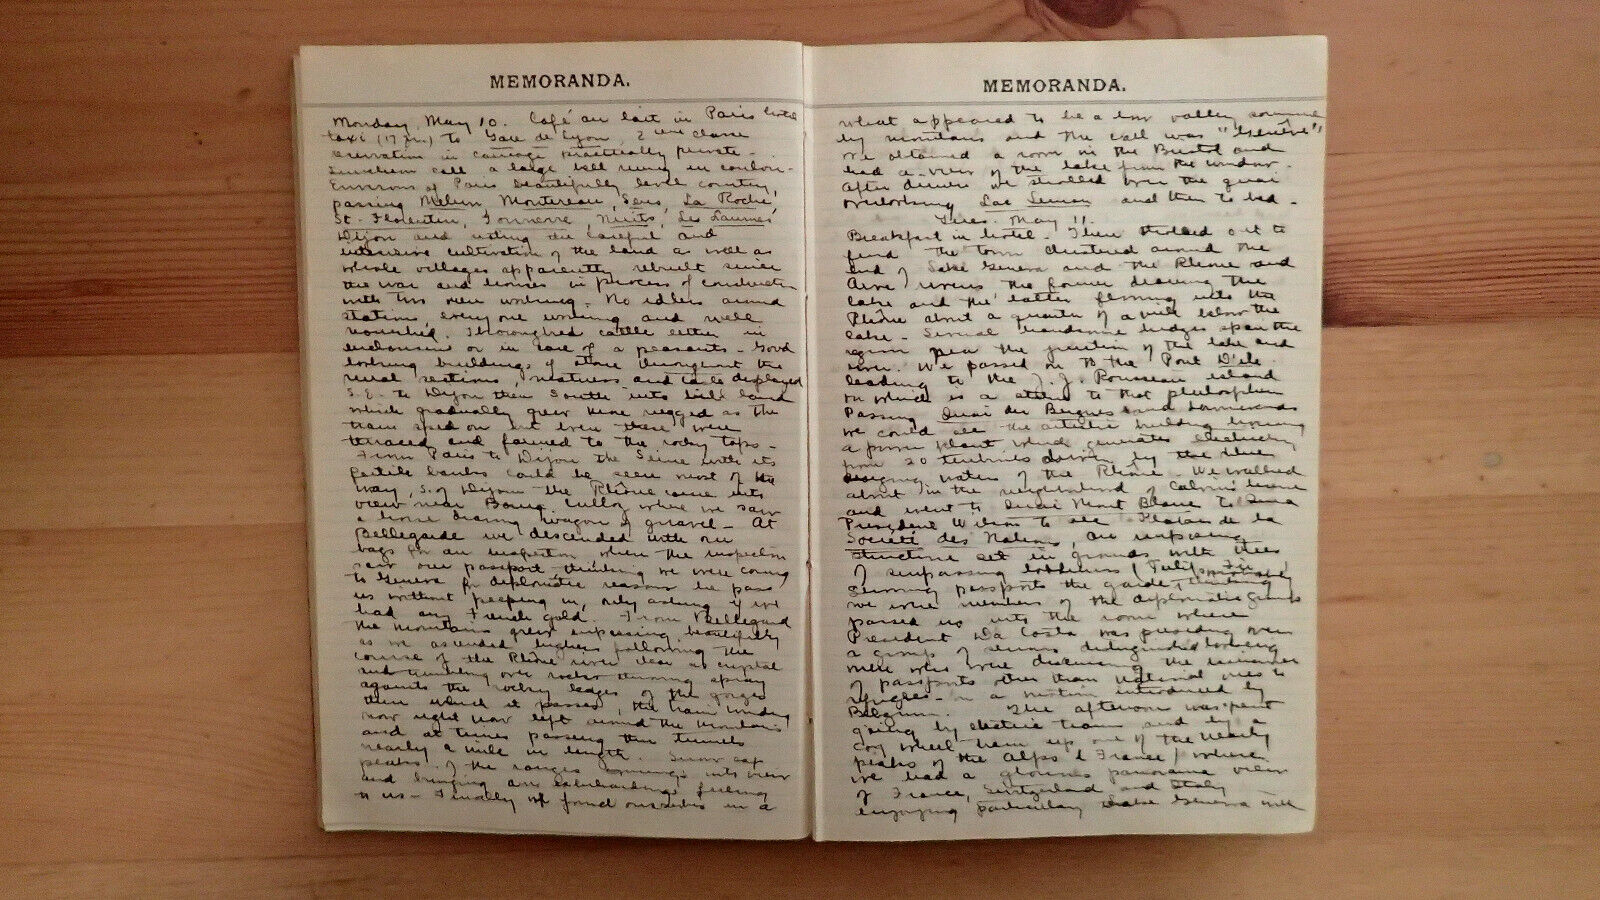 MEMORANDA.
Monday, May 10. Café au lait in Paris hotel
taxi (17 fr.) to Gare de Lyon, 2ieme classe
reservation in carriage practically private.
Luncheon call a large bell rung in corridor.
Environs of Paris beautifully level country,
passing Melun, Montereau, Sens, La Roche,
St. Florentin, Tonnerre, Nuits, Les Laumes
Dijon and noting the careful and
intensive cultivation of the land as well as
whole villages apparently rebuilt since
the war and houses in process of construction
with two men working. No idlers around
stations, every one working and well
nourished. Thoroughbred cattle either in
enclosures or in care of a peasants. Good
looking buildings of stone throughout the
rural sections, neatness and care displayed
S.E. to Dijon then South into hill land
which gradually grew more rugged as the
train sped on but even these were
terraced and farmed to the rocky tops.
From Paris to Dijon the Seine with its
fertile banks could be seen most of the
way, S. of Dijon the Rhône came into
view near Bourg. Culloz where we saw
a horse drawing wagon of gravel. At
Bellegarde we descended with our
bags for an inspection where the inspector
saw our passport thinking we were coming
to Geneva for diplomatic reasons he pass
us without peeping in, only asking if we
had any French gold. From Bellegard
the mountains grew imposing, beautifully
as we ascended higher following the
course of the Rhône river clear as crystal
and tumbling over rocks turning spray
against the rocky ledges of the gorges
thru which it passed, the train winding
now right now left around the mountains
and at times passing thru tunnels
nearly a mile in length. Snow cap
peaks of the ranges coming into view
and bringing an exhilarating feeling
to us. Finally we found ourselves in a
MEMORANDA.
what appeared to be a low valley
by mountains and the call was "Genève"
We obtained a room in the Bristol and
had a view of the lake from the window.
After dinner we strolled over the quai
overlooking Lac Leman and then to bed.
Tues. May 11.
Breakfast in hotel. Then strolled out to
find the town clustered around one
end of Lake Geneva and the Rhône and
Arve rivers the former draining the
lake and the latter flowing into the
Rhône about a quarter of a mile below the
lake. Several handsome bridges span the
river near the junction of the lake and
river. We passed on to the Pont D'ile
leading to the J. J. Rousseau island
on which is a statue to that philosopher
Passing Quai des Bergues and downwards
we could see the artistic building housing
a power plant which generates electricity
from 20 turbines driven by the blue
waters of the Rhône. We walked
about in the neighborhood of Calvin's home
and went to Quai Mont Blanc to
President Wilson to see Palais de la
Société des Nations, an imposing
structure set in grounds with trees
of surpassing loveliness (Tulip
Seeing passports the guide thinking
we were members of the diplomatic
passed us into the room where
President Da Costa was presiding over
a group of serious distinguished looking
men who were discussing the issuance
of passports other than national ones to
refugees in a motion introduced by
Belgium. The afternoon was spent
going by electric tram and by a
cog wheel tram up one of the nearby
peaks of the Alps (France) where
we had a glorious panorama view
of France, Switzerland and Italy
enjoying particularly Lake Geneva with